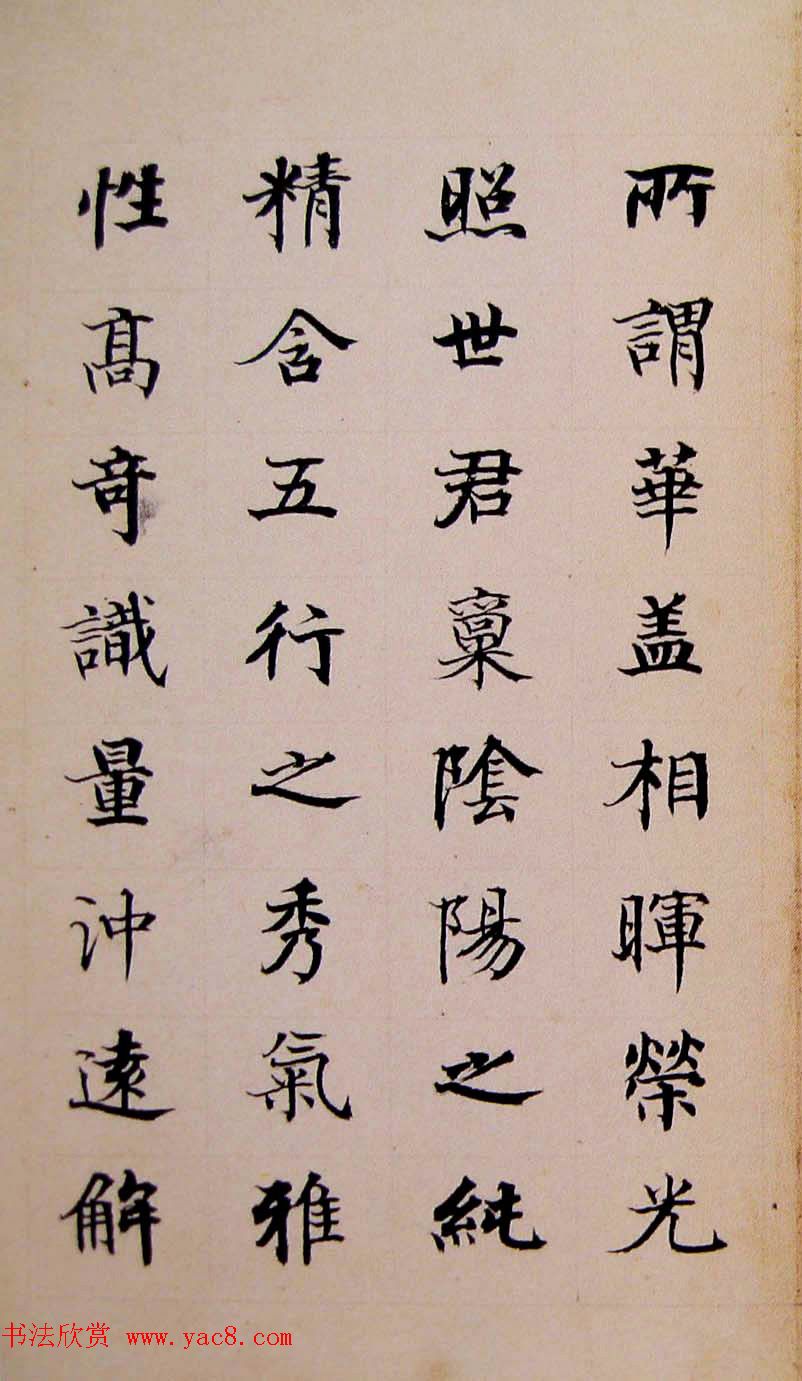 所謂華盖相暉榮光
照世君稟陰陽之純
精含五行之秀氣雅
性高奇識量沖遠解
书法欣赏 www.yac8.com